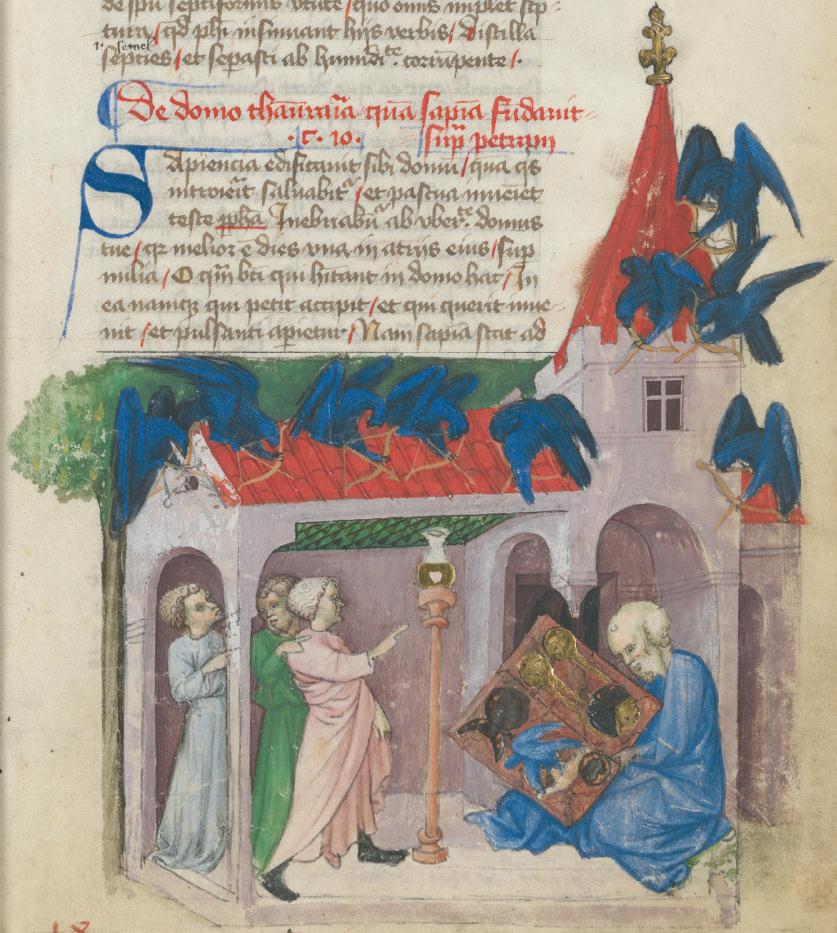 de spu septiformis vtute / quo omis implet scp-
tura / qd phi insinuant hijs verbis / Distilla
.i. semel
septies / et sepasti ab humidite corrūpente /.
De domo thaūraria quā sapia fūdauit
.C. 10. sup petram
Sapiencia edificauit sibi domū / quā qs
introierit saluabit / et pascua inueiet
teste ppha Inebriabū ab vbertte domus
tue / qr melior ē dies vna in atrijs eius / sup
milia / O qm bti qui hitant in domo hac / In
ea namqz qui petit accipit / et qui querit inue-
nit / et pulsanti apietur / Nam sapia stat ad